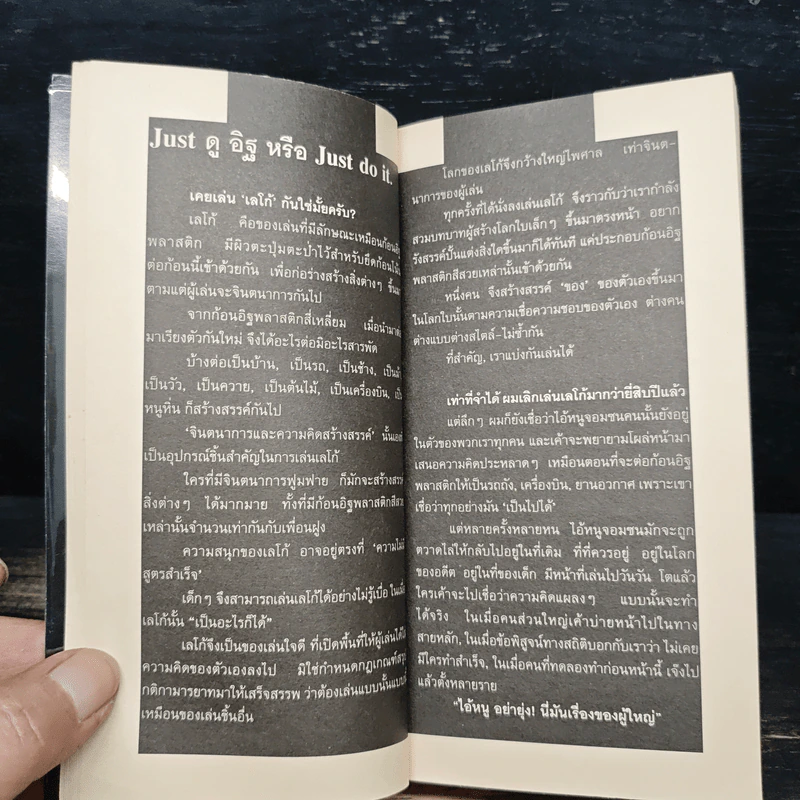 Just ดู อิฐ หรือ Just do it.
เคยเล่น ‘เลโก้’ กันใช่มั้ยครับ?
เลโก้ คือของเล่นที่มีลักษณะเหมือนก้อนอิฐ
พลาสติก มีผิวตะปุ่มตะป่ำไว้สำหรับยึดก้อนโน้น
ต่อก้อนนี้เข้าด้วยกัน เพื่อก่อร่างสร้างสิ่งต่างๆ ขึ้นมา
ตามแต่ผู้เล่นจะจินตนาการกันไป
จากก้อนอิฐพลาสติกสี่เหลี่ยม เมื่อนำมา
มาเรียงตัวกันใหม่ จึงได้อะไรต่อมิอะไรสารพัด
บ้างต่อเป็นบ้าน, เป็นรถ, เป็นช้าง, เป็นม้า
เป็นวัว, เป็นควาย, เป็นต้นไม้, เป็นเครื่องบิน, เป็น
หนูทิ่น ก็สร้างสรรค์กันไป
‘จินตนาการและความคิดสร้างสรรค์’ นั้นเอง
เป็นอุปกรณ์ชิ้นสำคัญในการเล่นเลโก้
ใครที่มีจินตนาการฟูมฟาย ก็มักจะสร้างสรร
สิ่งต่างๆ ได้มากมาย ทั้งที่มีก้อนอิฐพลาสติกสีสวย
เหล่านั้นจำนวนเท่ากันกับเพื่อนฝูง
ความสนุกของเลโก้ อาจอยู่ตรงที่ ‘ความไม่มี
สูตรสำเร็จ’
เด็กๆ จึงสามารถเล่นเลโก้ได้อย่างไม่รู้เบื่อ ในเมื่อ
เลโก้นั้น “เป็นอะไรก็ได้”
เลโก้จึงเป็นของเล่นใจดี ที่เปิดพื้นที่ให้ผู้เล่นได้ใส่
ความคิดของตัวเองลงไป มิใช่กำหนดกฎเกณฑ์
กติกามารยาทมาให้เสร็จสรรพ ว่าต้องเล่นแบบนั้นแบบนี้
เหมือนของเล่นชิ้นอื่น
โลกของเลโก้จึงกว้างใหญ่ไพศาล เท่าจินต-
นาการของผู้เล่น
ทุกครั้งที่ได้นั่งลงเล่นเลโก้ จึงราวกับว่าเรากำลัง
สวมบทบาทผู้สร้างโลกใบเล็กๆ ขึ้นมาตรงหน้า อยาก
รังสรรค์ปั้นแต่งสิ่งใดขึ้นมาก็ได้ทันที แค่ประกอบก้อนอิฐ
พลาสติกสีสวยเหล่านั้นเข้าด้วยกัน
หนึ่งคน จึงสร้างสรรค์ ‘ของ’ ของตัวเองขึ้นมา
ในโลกใบนั้นตามความเชื่อความชอบของตัวเอง ต่างคน
ต่างแบบต่างสไตล์–ไม่ซ้ำกัน
ที่สำคัญ, เราแบ่งกันเล่นได้
เท่าที่จำได้ ผมเลิกเล่นเลโก้มากว่ายี่สิบปีแล้ว
แต่ลึกๆ ผมก็ยังเชื่อว่าไอ้หนูจอมซนคนนั้นยังอยู่
ในตัวของพวกเราทุกคน และเค้าจะพยายามโผล่หน้ามา
เสนอความคิดประหลาดๆ เหมือนตอนที่จะต่อก้อนอิฐ
พลาสติกให้เป็นรถถัง, เครื่องบิน, ยานอวกาศ เพราะเขา
เชื่อว่าทุกอย่างมัน ‘เป็นไปได้’
แต่หลายครั้งหลายหน ไอ้หนูจอมซนมักจะถูก
ตวาดไล่ให้กลับไปอยู่ในที่เดิม ที่ที่ควรอยู่ อยู่ในโลก
ของอดีต อยู่ในที่ของเด็ก มีหน้าที่เล่นไปวันวัน โตแล้ว
ใครเค้าจะไปเชื่อว่าความคิดแผลงๆ แบบนั้นจะทำ
ได้จริง ในเมื่อคนส่วนใหญ่เค้าบ่ายหน้าไปในทาง
สายหลัก, ในเมื่อข้อพิสูจน์ทางสถิติบอกกับเราว่า ไม่เคย
มีใครทำสำเร็จ, ในเมื่อคนที่ทดลองทำก่อนหน้านี้ เจ๊งไป
แล้วตั้งหลายราย
“ไอ้หนู อย่ายุ่ง! นี่มันเรื่องของผู้ใหญ่”